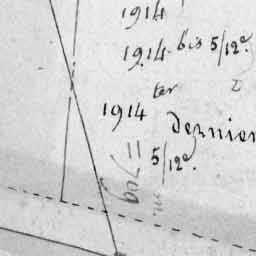 1914
1914 bis 5/12e
1914 ter dernier
5/12e